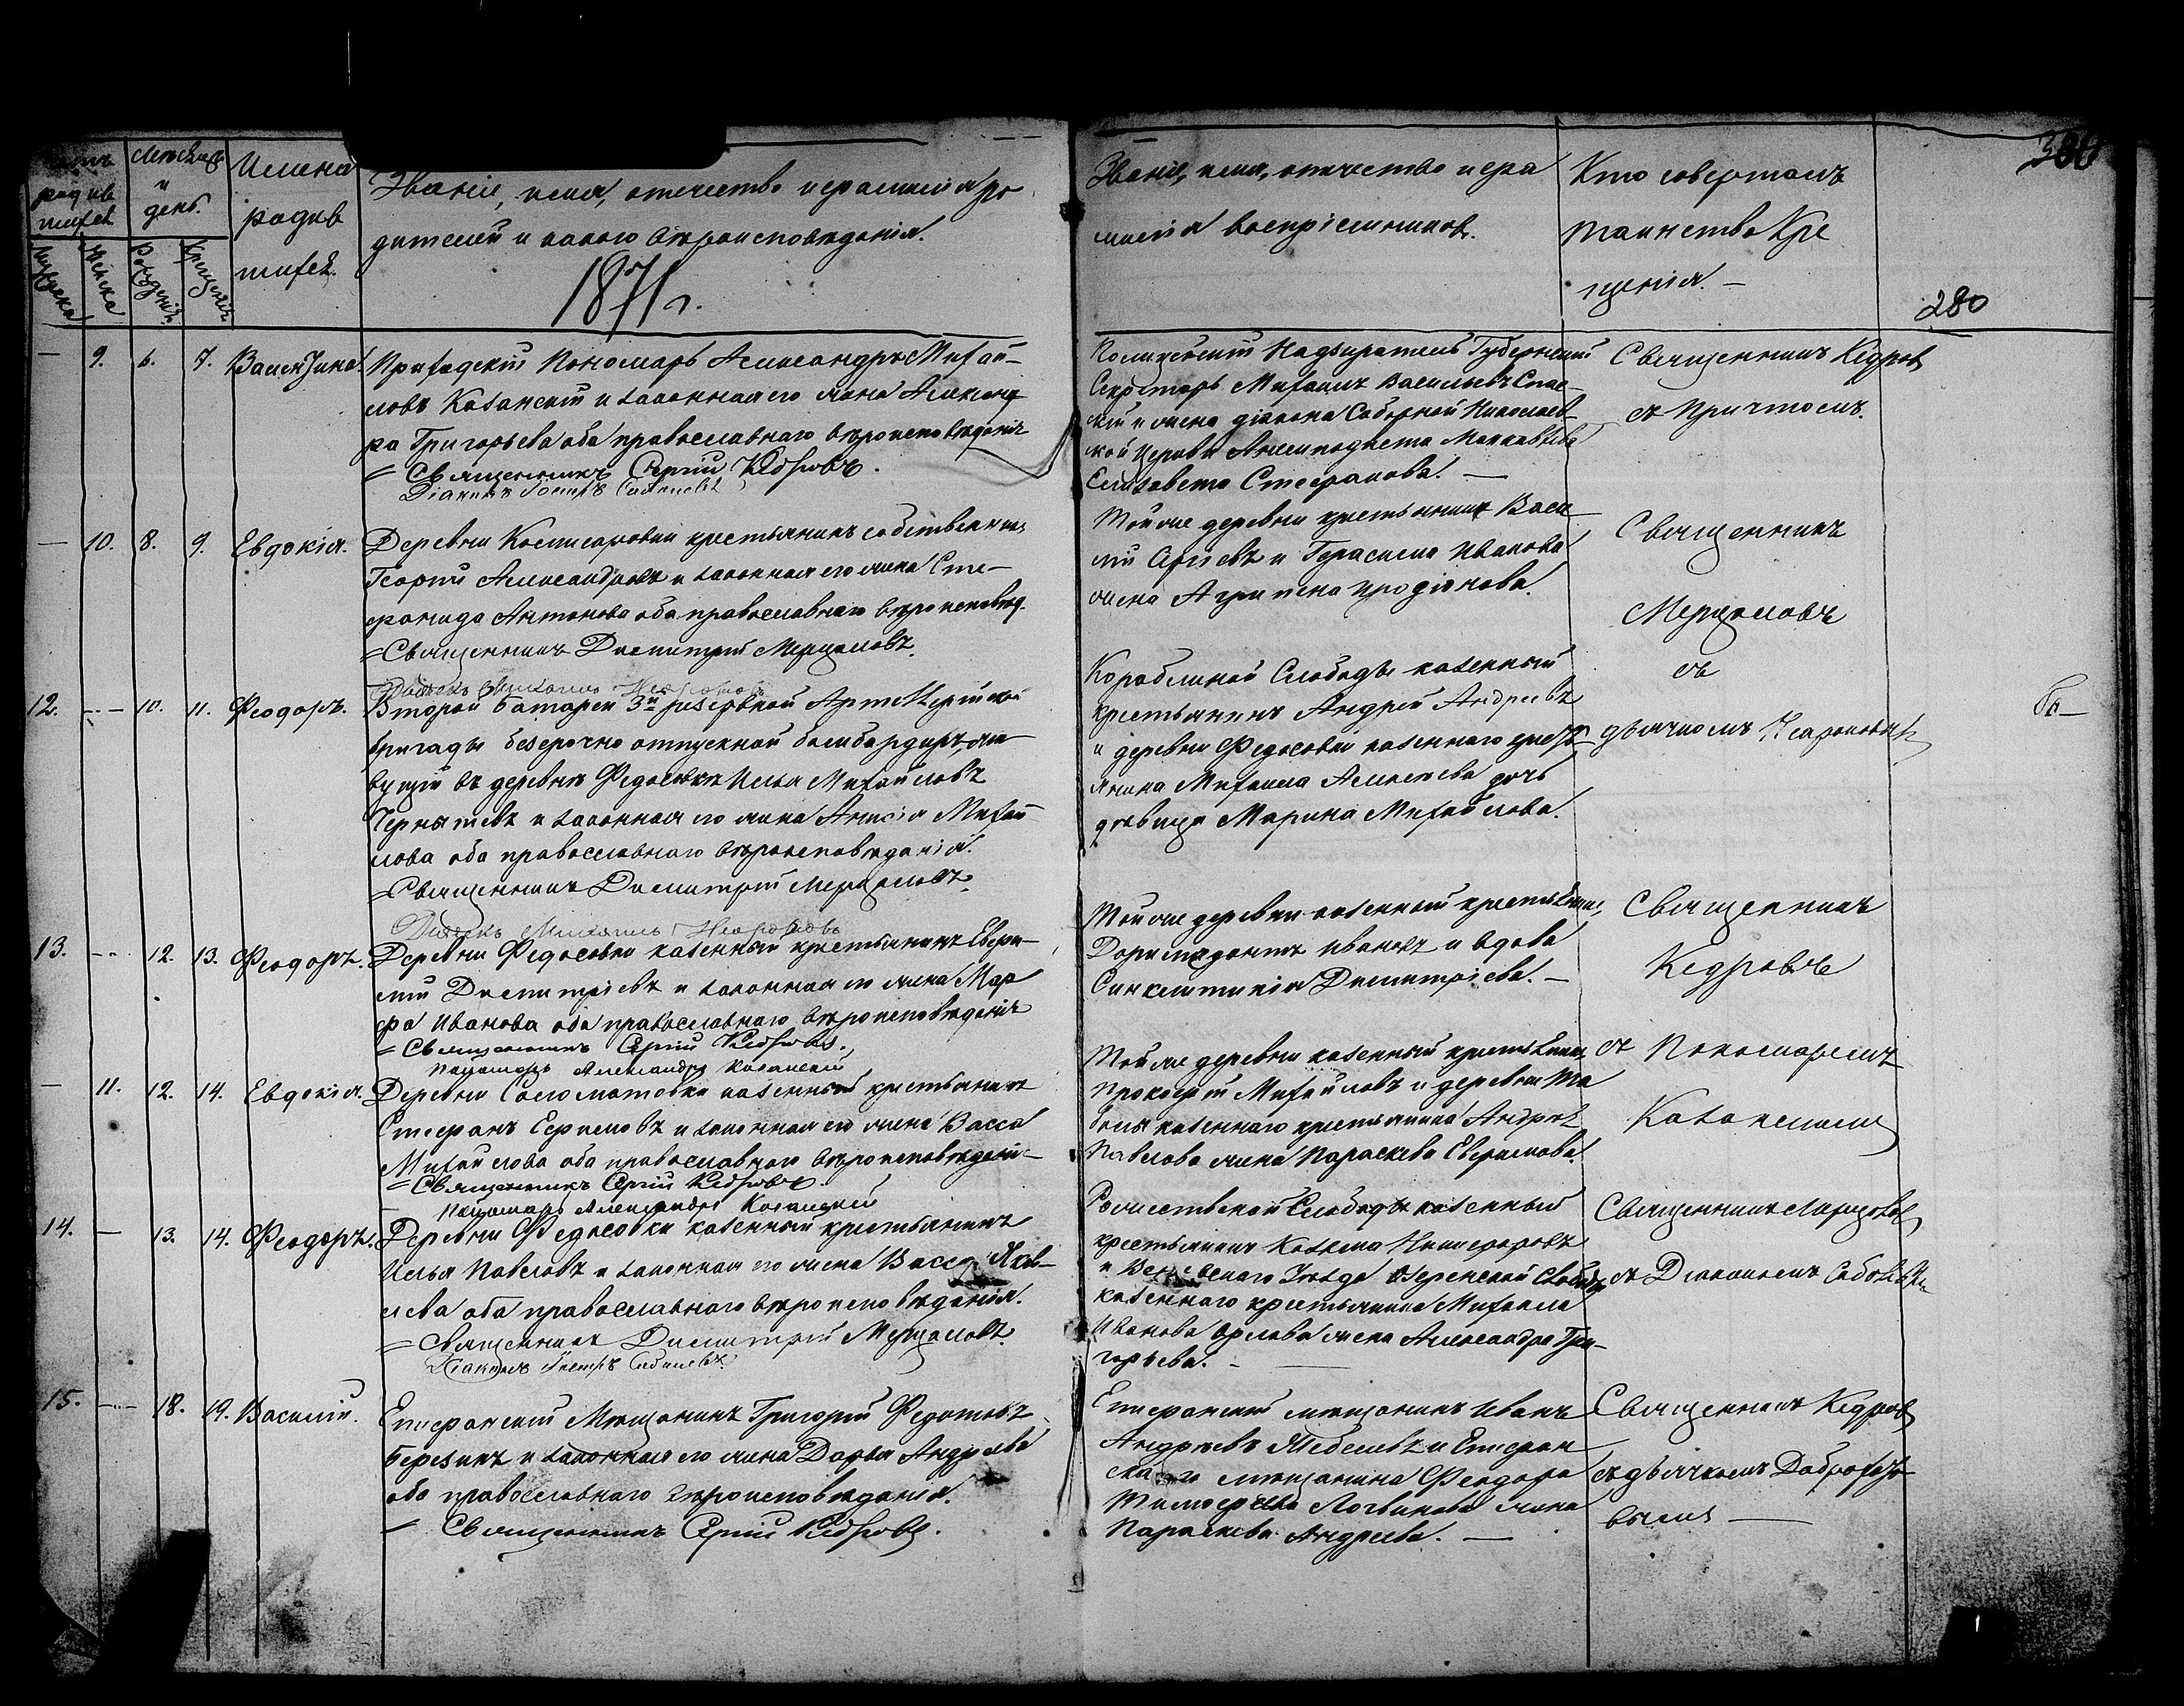 родив
шихся
Мѣсяцъ
и
день.
Имена
родив
шихся.
Званіе, имя, отчество и фамилія ро
дителей и какого вѣроисповѣданія.
1871 г.
Званіе, имя, отчество и фа
милія воспріемниковъ.
Кто совершалъ
таинство Кре
щенія. —
300
280
— 9. 6. 7. Валентина.
Приходскій Пономарь Александръ Михай–
ловъ Казанскій и законная его жена Александ
ра Григорьева оба православнаго вѣроисповѣданія
= Священникъ Сергій Кедровъ.
Діаконъ
Полицейскій Надзиратель Губернскій
Секретарь Михаилъ Васильевъ Спас–
кій и жена діакона Соборной Николаев
кой Церкви
Елизавета Стефанова. —
Священникъ Кедровъ
съ Причтомъ.
— 10. 8. 9. Евдокія.
Деревни крестьянинъ собственник
Георгій Александровъ и законная его жена Сте–
фанида Антонова оба православнаго вѣроисповѣд.
= Священникъ Димитрій Мерцаловъ.
Дьячекъ Михаилъ
Той же деревни крестьянинъ Васи
лій и Герасима Иванова
жена Агрипена Иродіонова.
Священникъ
Мерцаловъ
съ
12. — 10. 11. Феодоръ.
Второй батареи 3й резервной Артиллерійской
бригады безсрочно отпускной бомбардиръ жи
вущій въ деревнѣ Федосовкѣ Илья Михайловъ
Чернышевъ и законная его жена Анисія Михай
лова оба православнаго вѣроисповѣданія.
= Священникъ Димитрій Мерцаловъ.
Дьячекъ Михаилъ
Кораблиной Слободы казенный
крестьянинъ Андрей Андреевъ
и деревни Федосовки казеннаго кресть
янина Михаила Алексѣева дочь
дѣвица Марина Михайлова.
дьячкомъ
13. — 12. 13. Феодоръ.
Деревни Федосовки казенный крестьянинъ Евфи–
мій Димитріевъ и законная его жена Мар
фа Иванова оба православнаго вѣроисповѣданія
= Священникъ Сергій Кедровъ.
Пономарь Александръ Казанскій
Той же деревни казенный крестьянин
Доримедонтъ Ивановъ и вдова
Синклитикія Димитріева. —
Священникъ
Кедровъ
— 11. 12. 14. Евдокія.
Деревни Соломатовки казенный крестьянинъ
Стефанъ Ефимовъ и законная его жена Васса
Михайлова оба православнаго вѣроисповѣдані–
= Священникъ Сергій Кедровъ.
Пономарь Александръ Казанскій
Той же деревни казенный крестьянин
Прокофій Михайловъ и деревни
казеннаго крестьянина Андрея
Павлова жена Параскева Евфимова.
съ Пономаремъ
Казанскимъ
14. — 13. 14. Феодоръ.
Деревни Федосовки казенный крестьянинъ
Илья Павловъ и законная его жена Васса Яков–
лева оба православнаго вѣроисповѣданія.
= Священникъ Димитрій Мерцаловъ.
Діаконъ
Рожественской Слободы казенный
крестьянинъ Козьма Никифоровъ
и Уѣзда Озеренской Слободы
казеннаго крестьянина Михаила
Иванова Орлова жена Александра Гри–
горьева. —
Священникъ Мерцаловъ
съ Діакономъ
15. — 18. 19. Василій.
Епифанскій Мѣщанинъ Григорій Федотовъ
Березинъ и законная его жена Дарья Андреева
оба православнаго вѣроисповѣданія.
= Священникъ Сергій Кедровъ.
Епифанскій мѣщанинъ Иванъ
Андреевъ и Епифан
скаго мѣщанина Феодора
Тимофеева Логвинова жена
Параскева Андреева. —
Священникъ Кедровъ
съ дьячкомъ Доброхо
вымъ —